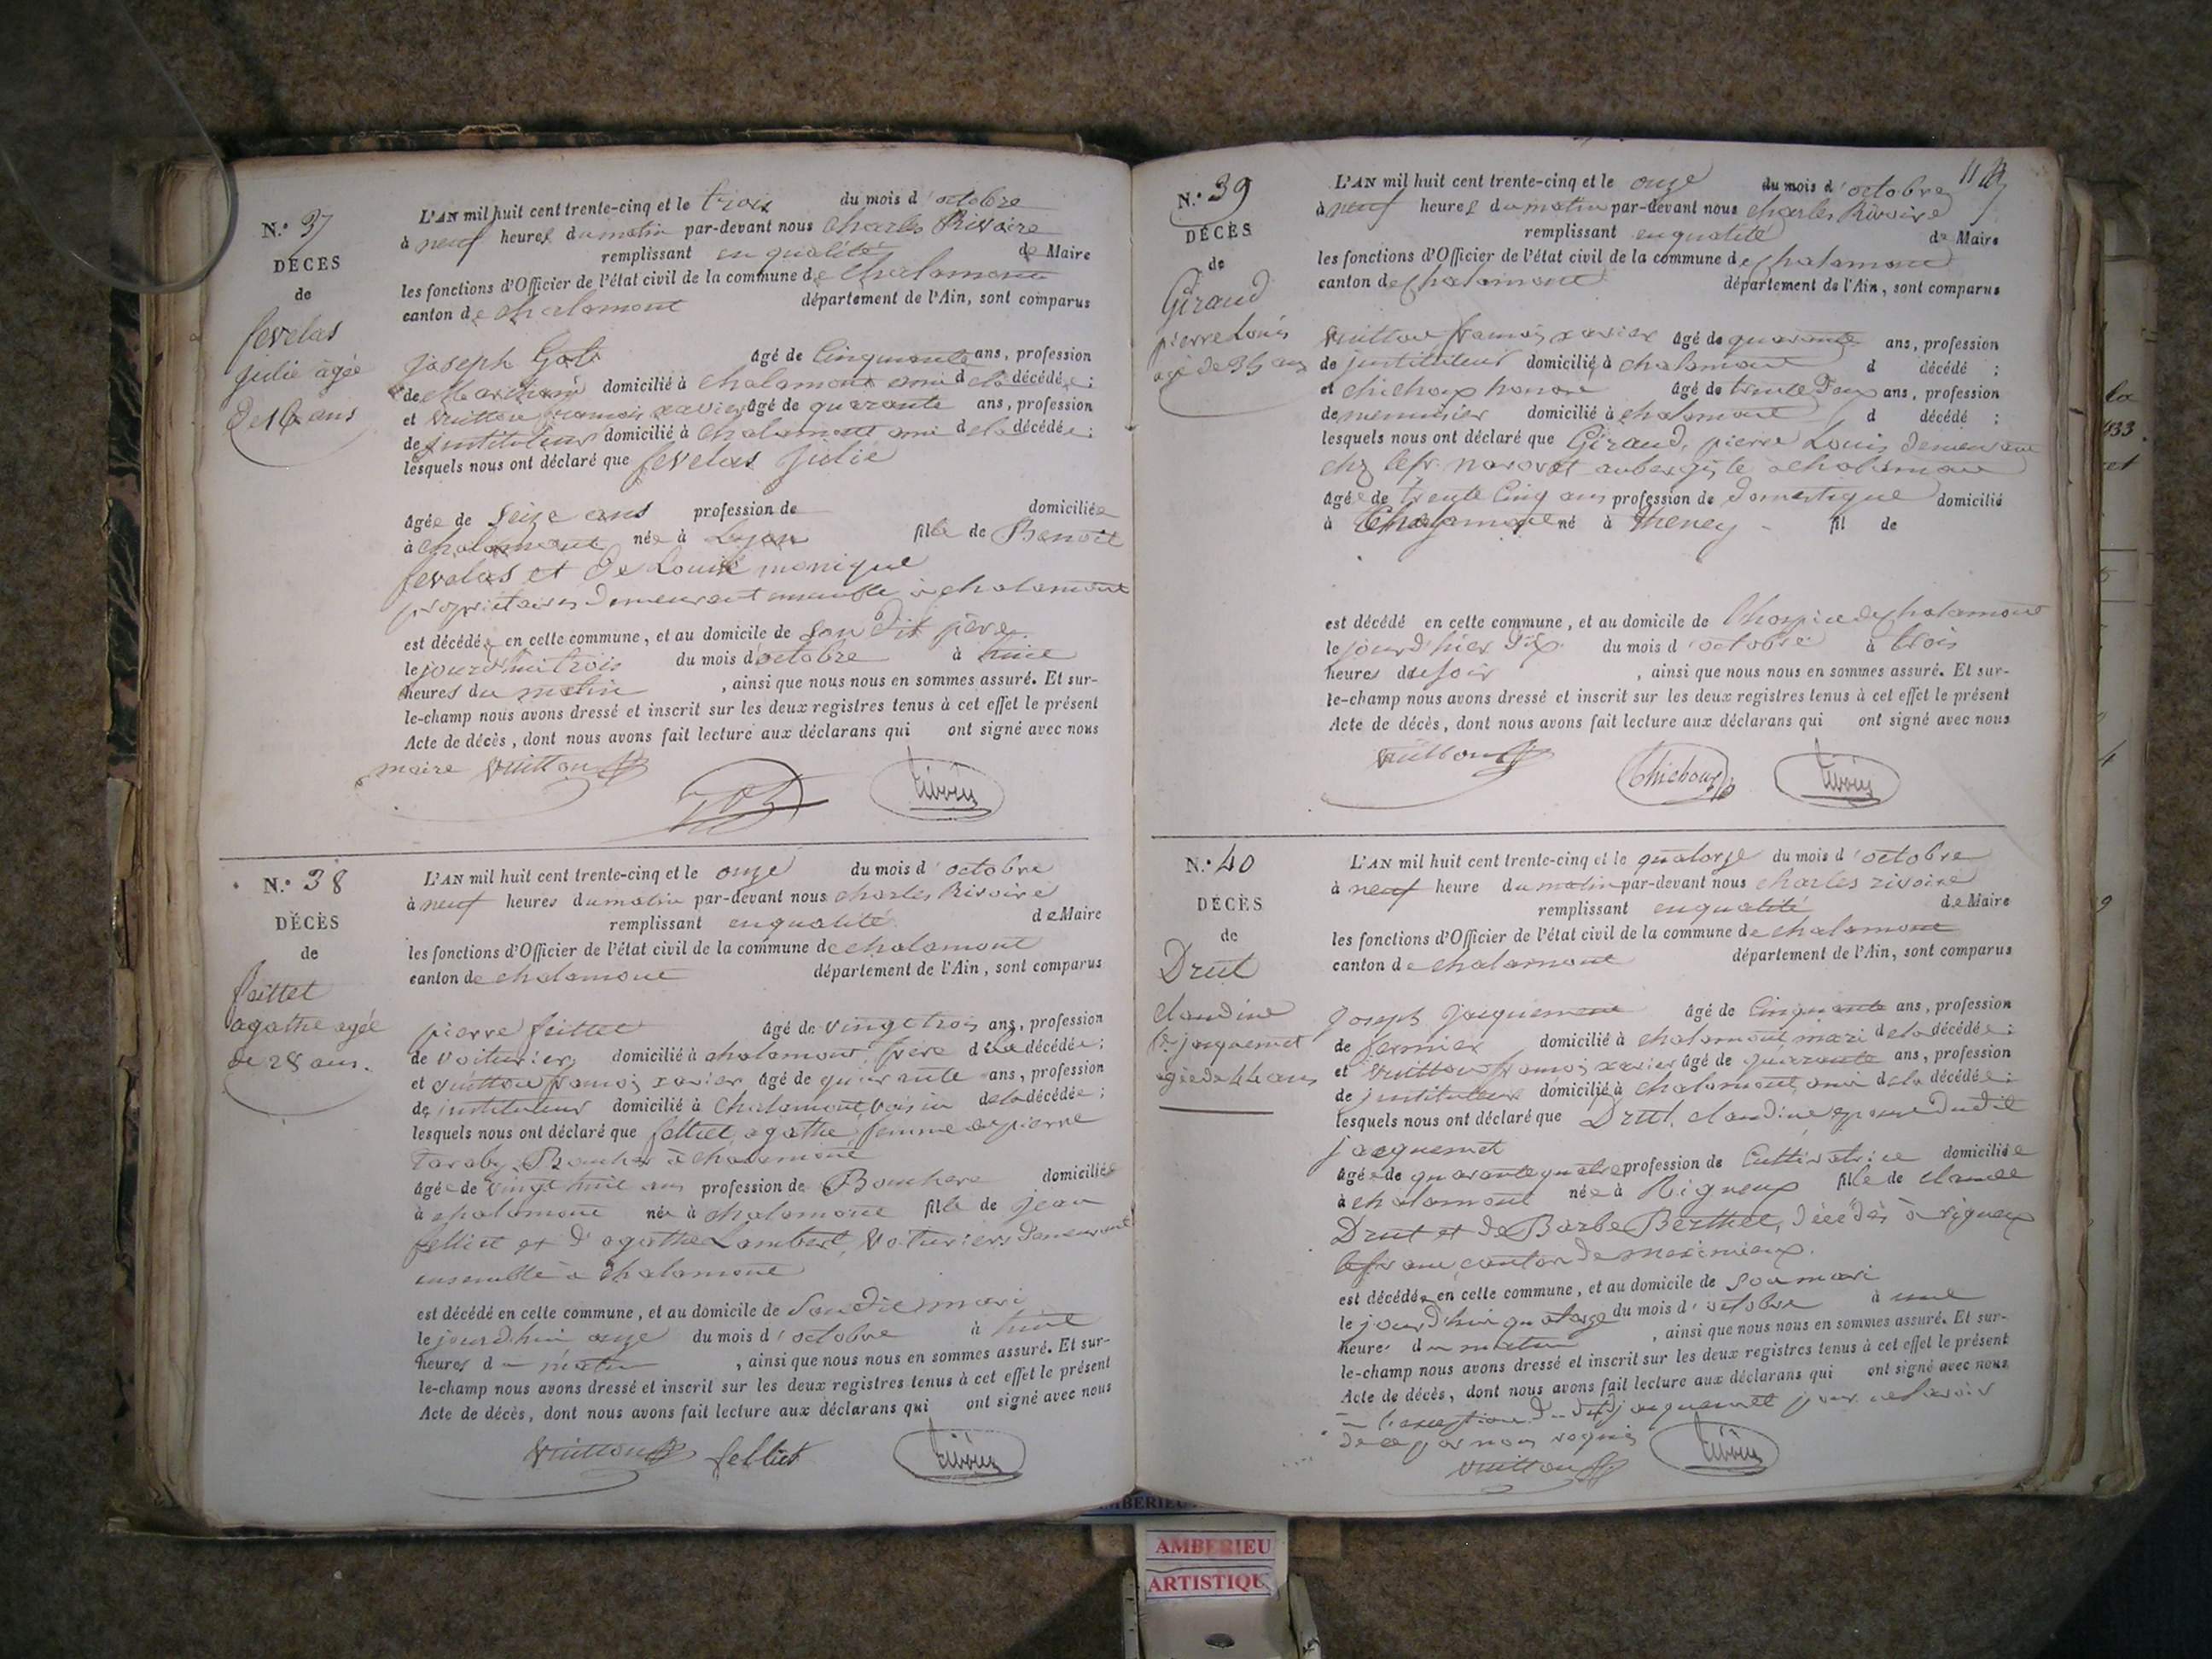 N.° 37
DÉCÈS
de
fevelas
julie âgée
de 16 ans
L'AN mil huit cent trente-cinq et le trois du mois d'octobre
à neuf heures du matin par-devant nous Charles Rivoire
remplissant en qualité de Maire
les fonctions d'Officier de l'état civil de la commune de Chalamont
canton de chalamont département de l'Ain, sont comparus
joseph Gob âgé de Cinquante ans, profession
de Marchand domicilié à chalamont ami de la décédée;
et Vuitton françois xavier âgé de quarante ans, profession
de jnstituteur domicilié à chalamont ami de la décédée;
lesquels nous ont déclaré que fevelas julie
âgée de Seize ans profession de domiciliée
à chalamont née à Lyon fille de Benoit
fevelas et de Louise monique
propriétaires demeurant ensemble à chalamont
est décédée en cette commune, et au domicile de son dit père
le jourd'hui trois du mois d'octobre à huit
heures du matin, ainsi que nous nous en sommes assuré. Et sur-
le-champ nous avons dressé et inscrit sur les deux registres tenus à cet effet le présent
Acte de décès, dont nous avons fait lecture aux déclarans qui ont signé avec nous
maire Vuitton
N.° 38
DÉCÈS
de
feillet
agathe agée
de 28 ans.
L'AN mil huit cent trente-cinq et le onze du mois d'octobre
à neuf heures du matin par-devant nous charles Rivoire
remplissant en qualité de Maire
les fonctions d'Officier de l'état civil de la commune de chalamont
canton de chalamont département de l'Ain, sont comparus
pierre feillet âgé de vingt trois ans, profession
de voiturier domicilié à chalamont frère de la décédée;
et Vuitton françois xavier âgé de quarante ans, profession
de jnstituteur domicilié à Chalamont voisin de la décédée;
lesquels nous ont déclaré que felliet agathe femme de pierre
taraby Boucher à chalamont
âgée de vingt huit ans profession de Bouchere domiciliée
à chalamont née à chalamont fille de jean
felliet et d'agathe Lambert, Voituriers demeurant
ensemble à chalamont
est décédé en cette commune, et au domicile de Son dit mari
le jourd'hui onze du mois d'octobre à huit
heures du matin, ainsi que nous nous en sommes assuré. Et sur-
le-champ nous avons dressé et inscrit sur les deux registres tenus à cet effet le présent
Acte de décès, dont nous avons fait lecture aux déclarans qui ont signé avec nous
Vuitton felliet
N.° 39
DÉCÈS
de
Giraud
pierre Louis
agé de 35 ans
L'AN mil huit cent trente-cinq et le onze du mois d'octobre
à neuf heures du matin par-devant nous charles Rivoire
remplissant en qualité de Maire
les fonctions d'Officier de l'état civil de la commune de chalamont
canton de chalamont département de l'Ain, sont comparus
Vuitton françois xavier âgé de quarante ans, profession
de jnstituteur domicilié à chalamont d décédé;
et chichoux honoré âgé de trente Deux ans, profession
de menuisier domicilié à chalamont d décédé;
lesquels nous ont déclaré que Giraud, pierre Louis demeurant
chez le sr aubergiste à chalamont
âgé de trente Cinq ans profession de domestique domicilié
à Chalamont né à theney fil de
est décédé en cette commune, et au domicile de l'hospice de chalamont
le jourd'hier Dix du mois d'octobre à trois
heures du soir, ainsi que nous nous en sommes assuré. Et sur-
le-champ nous avons dressé et inscrit sur les deux registres tenus à cet effet le présent
Acte de décès, dont nous avons fait lecture aux déclarans qui ont signé avec nous
Vuitton
N.° 40
DÉCÈS
de
Drut
claudine
fe jaquemet
agée de 44 ans
L'AN mil huit cent trente-cinq et le quatorze du mois d'octobre
à neuf heure du matin par-devant nous charles rivoire
remplissant en qualité de Maire
les fonctions d'Officier de l'état civil de la commune de chalamont
canton de chalamont département de l'Ain, sont comparus
joseph jacquemet âgé de Cinquante ans, profession
de fermier domicilié à chalamont mari de la décédée;
et Vuitton françois xavier âgé de quarante ans, profession
de jnstituteur domicilié à chalamont ami de la décédée;
lesquels nous ont déclaré que Drut, claudine epouse dudit
jacquemet
âgée de quarante quatre profession de Cultivatrice domiciliée
à chalamont née à Rigneux fille de claude
Drut et de Barbe Berthet, décédés à rigneux
le franc canton de meximieux.
est décédée en cette commune, et au domicile de Son mari
le jourd'hui quatorze du mois d'octobre à une
heures du matin, ainsi que nous nous en sommes assuré. Et sur-
le-champ nous avons dressé et inscrit sur les deux registres tenus à cet effet le présent
Acte de décès, dont nous avons fait lecture aux déclarans qui ont signé avec nous
à l'exception du dit jacquemet pour ne savoir
de ce par nous requis
Vuitton
AMBERIEU
ARTISTIQUE